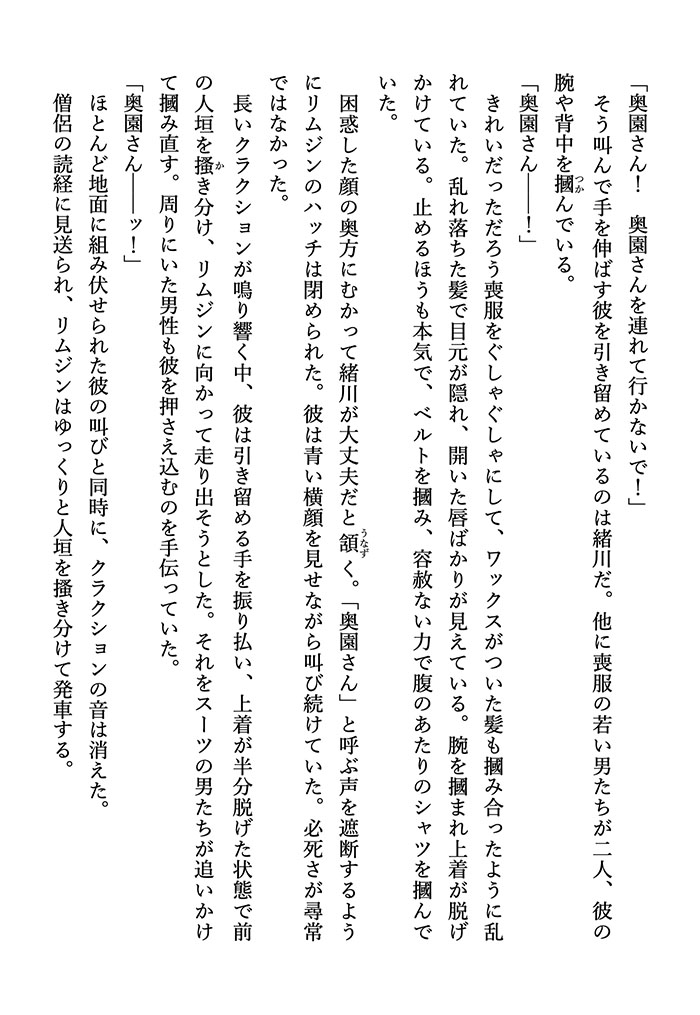 「奥園さん！　奥園さんを連れて行かないで！」
　そう叫んで手を伸ばす彼を引き留めているのは緒川だ。他に喪服の若い男たちが二人、彼の
腕や背中を摑んでいる。
「奥園さん――！」
　きれいだっただろう喪服をぐしゃぐしゃにして、ワックスがついた髪も摑み合ったように乱
れていた。乱れ落ちた髪で目元が隠れ、開いた唇ばかりが見えている。腕を摑まれ上着が脱げ
かけている。止めるほうも本気で、ベルトを摑み、容赦ない力で腹のあたりのシャツを摑んで
いた。
　困惑した顔の奥方にむかって緒川が大丈夫だと頷く。「奥園さん」と呼ぶ声を遮断するよう
にリムジンのハッチは閉められた。彼は青い横顔を見せながら叫び続けていた。必死さが尋常
ではなかった。
　長いクラクションが鳴り響く中、彼は引き留める手を振り払い、上着が半分脱げた状態で前
の人垣を掻き分け、リムジンに向かって走り出そうとした。それをスーツの男たちが追いかけ
て摑み直す。周りにいた男性も彼を押さえ込むのを手伝っていた。
「奥園さん――ッ！」
　ほとんど地面に組み伏せられた彼の叫びと同時に、クラクションの音は消えた。
　僧侶の読経に見送られ、リムジンはゆっくりと人垣を掻き分けて発車する。